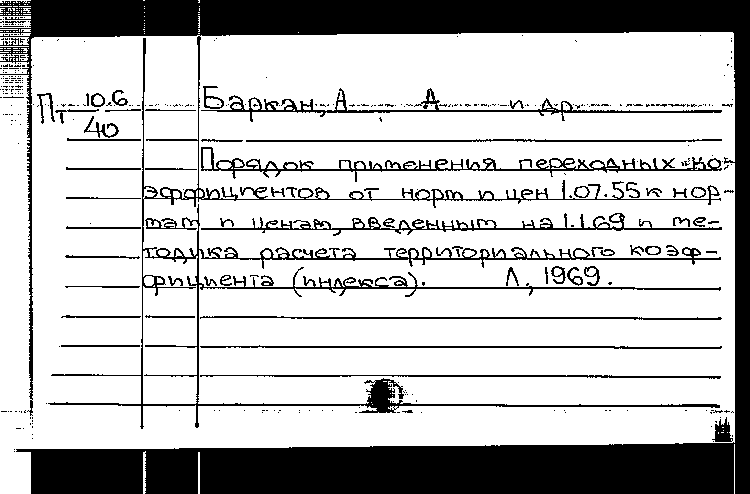 Пт 10.6 Баркан, А А и др.
40
Порядок применения переходных ко-
эффициентов от норм и цен 1.07.55 к нор-
мам и ценам, введенным на 1.1.69 и ме-
тодика расчета территориального коэф-
фициента (индекса). Л., 1969.